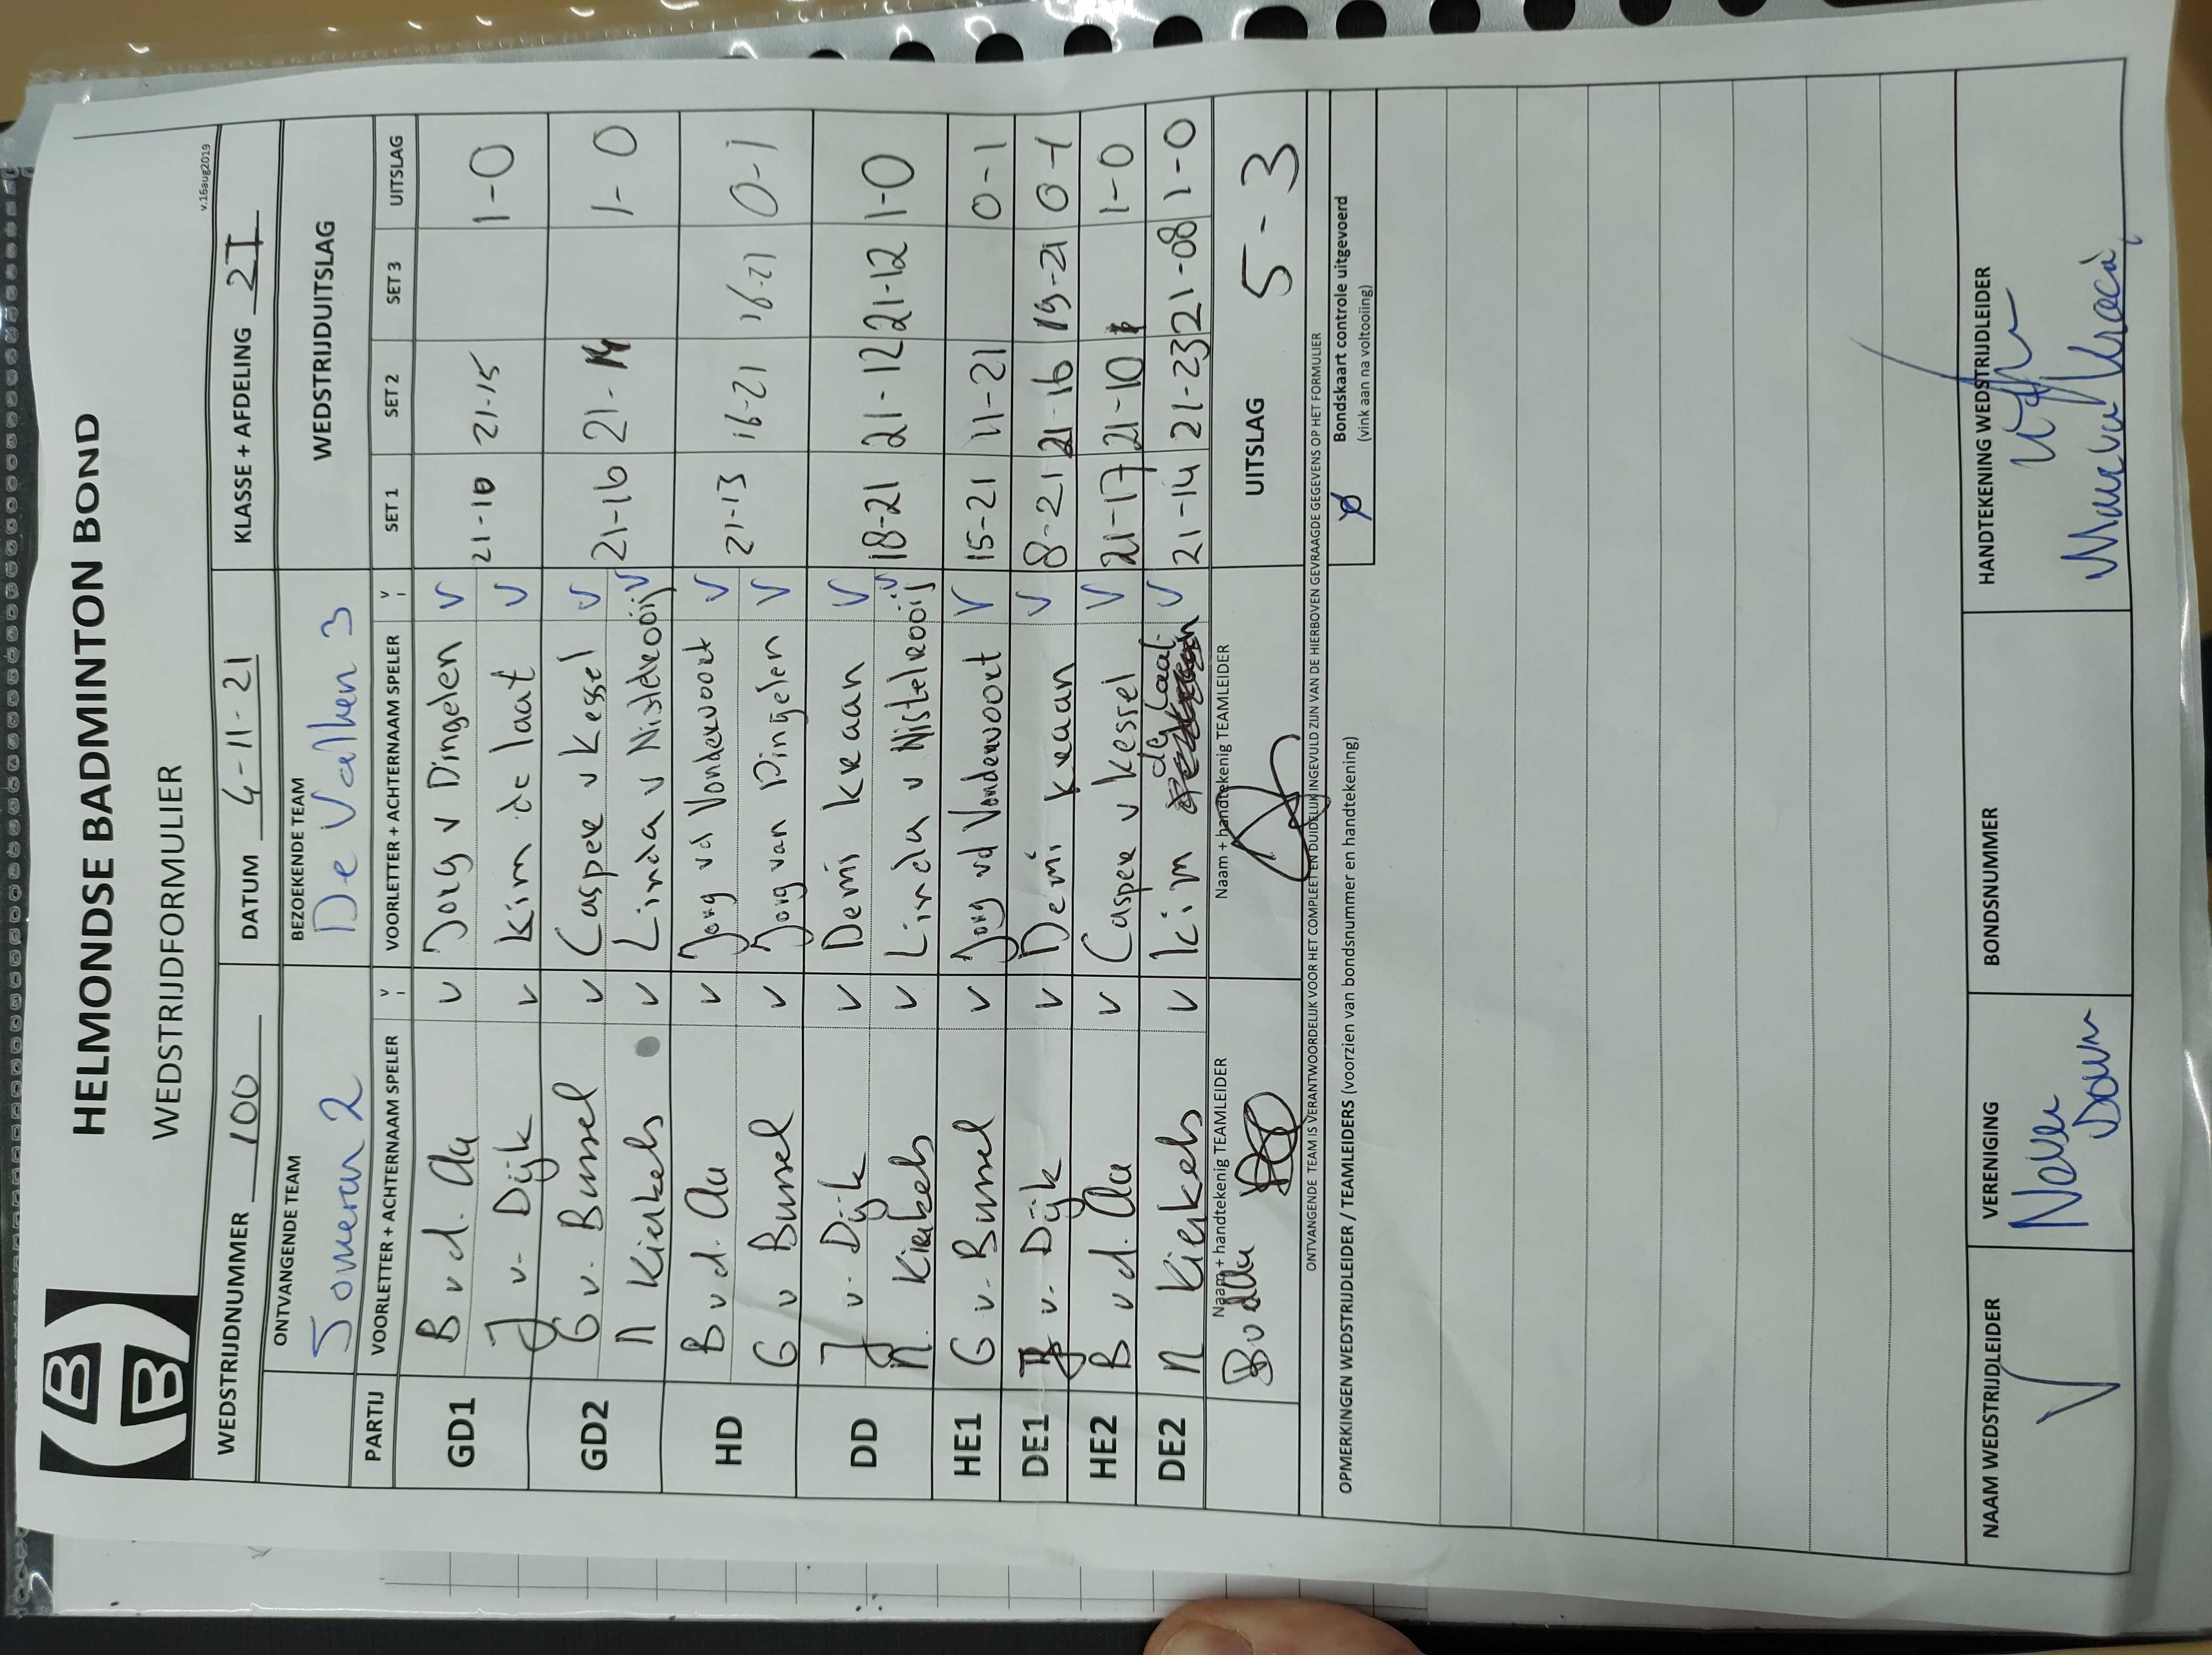 HELMONDSE BADMINTON BOND
WEDSTRIJDFORMULIER
v.16aug2019
WEDSTRIJDNUMMER 100 DATUM 4-11-21 KLASSE + AFDELING 2I
ONTVANGENDE TEAM BEZOEKENDE TEAM WEDSTRIJDUITSLAG
Someren 2 De Valken 3
PARTIJ VOORLETTER + ACHTERNAAM SPELER V VOORLETTER + ACHTERNAAM SPELER V SET 1 SET 2 SET 3 UITSLAG
GD1 B v d. Aa v Jorg v Dingelen v
J v. Dijk v Kim de laat v 21-10 21-15 1-0
GD2 G v. Bussel v Casper v Kessel v
N Kierkels v Linda v Nistelrooij v 21-16 21-14 1-0
HD B v d. Aa v Jorg vd Vondervoort v
G v Bussel v Jorg van Dingelen v 21-13 16-21 16-21 0-1
DD J v. Dijk v Demi kraan v
N. Kierkels v Linda v Nistelrooij v 18-21 21-12 21-12 1-0
HE1 G v. Bussel v Jorg vd Vondervoort v 15-21 11-21 0-1
DE1 J v. Dijk v Demi kraan v 8-21 21-16 19-21 0-1
HE2 B v d. Aa v Casper v Kessel v 21-17 21-10 1-0
DE2 N Kierkels v Kim de Laat v 21-14 21-23 21-08 1-0
Naam + handtekenig TEAMLEIDER Naam + handtekenig TEAMLEIDER UITSLAG 5-3
B v d Aa
ONTVANGENDE TEAM IS VERANTWOORDELIJK VOOR HET COMPLEET EN DUIDELIJK INGEVULD ZIJN VAN DE HIERBOVEN GEVRAAGDE GEGEVENS OP HET FORMULIER
OPMERKINGEN WEDSTRIJDLEIDER / TEAMLEIDERS (voorzien van bondsnummer en handtekening)
Bondskaart controle uitgevoerd
(vink aan na voltooiing)
NAAM WEDSTRIJDLEIDER VERENIGING BONDSNUMMER HANDTEKENING WEDSTRIJDLEIDER